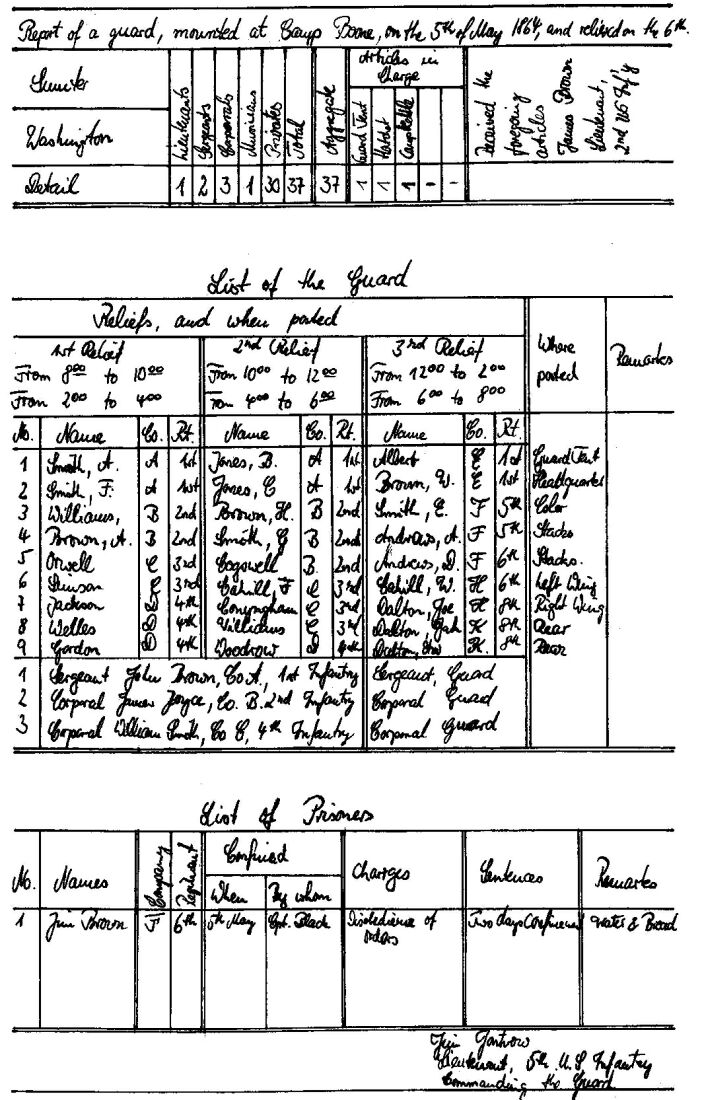 Report of a guard, mounted at Camp Boone, on the 5th of May 1864, and relieved on the 6th.
Sumter
Washington
Lieutenants
Sergeants
Corporals
Musicians
Privates
Total
Aggregate
Articles in Charge
Guard Tent
Hatchet
Campkettle
Received the foregoing articles James Brown Lieutenant, 2nd US Inf'y
Detail 1 2 3 1 30 37 37 1 1 1 - -
List of the Guard
Reliefs, and when posted
Where posted
Remarks
1st Relief 2nd Relief 3rd Relief
From 8 00 to 10 00 From 10 00 to 12 00 From 12 00 to 2 00
From 2 00 to 4 00 From 4 00 to 6 00 From 6 00 to 8 00
No. Name Co. Rt. Name Co. Rt. Name Co. Rt.
1 Smith, A. A 1st Jones, B. A 1st Albert E 1st Guard Tent
2 Smith, F. A 1st Jones, C A 1st Brown, W. E 1st Headquarter
3 Williams, B 2nd Brown, H. B 2nd Smith, E. F 5th Color
4 Brown, A. B 2nd Smith, G B 2nd Andrews, A. F 5th Stacks
5 Orwell C 3rd Cogswell B 2nd Andrews, D. F 6th Stacks.
6 Stimson C 3rd Cahill, F C 3rd Cahill, W. H 6th Left Wing
7 Jackson D 4th Conyngham C 3rd Dalton, Joe H 8th Right Wing
8 Welles D 4th Williams C 3rd Dalton, H 8th Rear
9 Gordon D 4th Woodrow D 4th Dalton, H. 8th Rear
1 Sergeant John Brown, Co. A, 1st Infantry Sergeant, Guard
2 Corporal James Joyce, Co. B. 2nd Infantry Corporal Guard
3 Corporal William Smith, Co C, 4th Infantry Corporal Guard
List of Prisoners
No. Names Company Regiment Confined When By whom Charrges Sentences Remarks
1 Jim Brown F 6th 5th May Cpt. Black Disobedience of orders Two days Confinement Water & Bread
Lieutenant, 5th U.S Infantry
Commanding the Guard